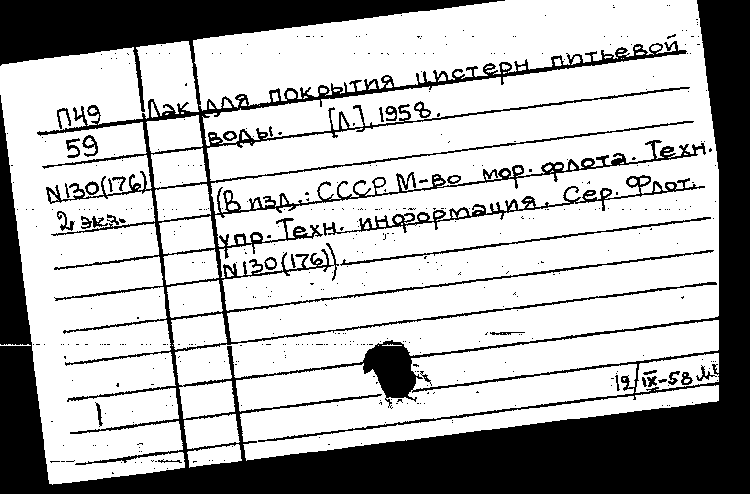 П49
59
N130(176)
2 экз.
Лак для покрытия цистерн питьевой
воды. [Л.], 1958.
(В изд.: СССР М-во мор. флота. Техн.
упр. Техн. информация. Сер. Флот.
N130(176)).
1
19/IX-58